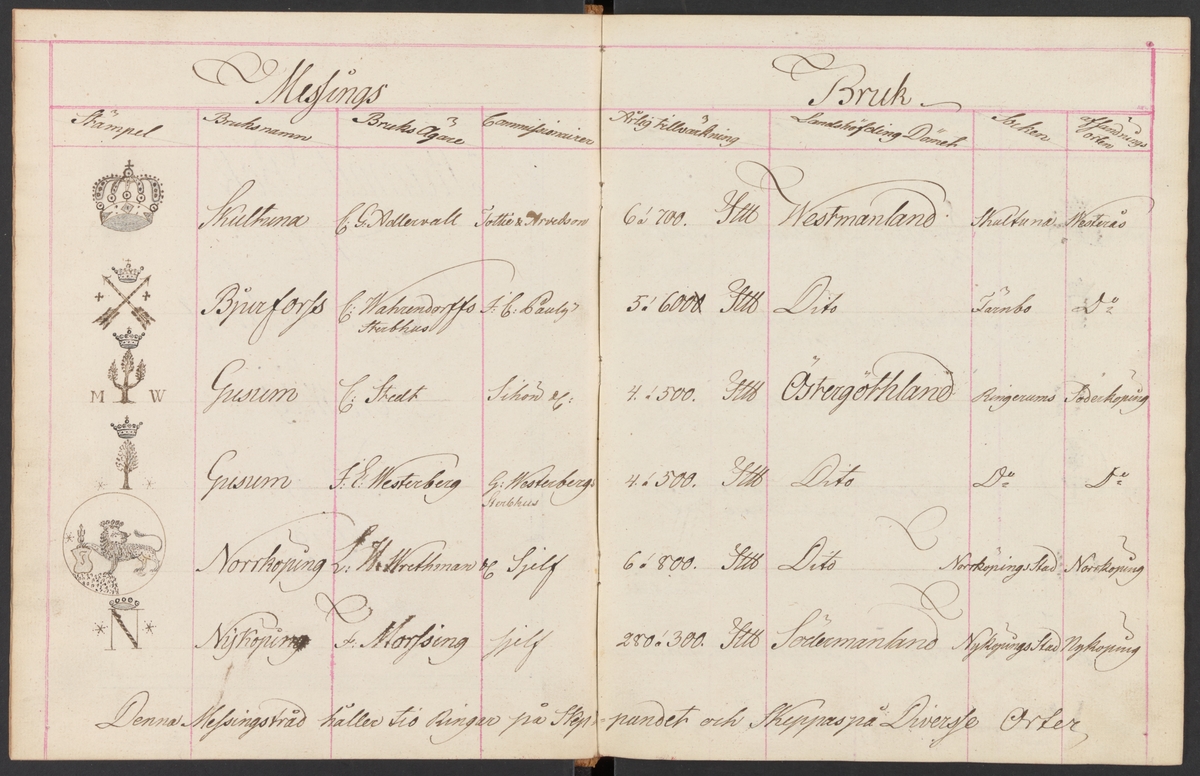 Messings Bruk
Stämpel Bruksnamn Bruks Ägare Commissionairer Årlig tillvärkning Landshöfding Dömeh Socken afsändnings orten
Skultuna C. G. Adlervall Tottie & Arvedson 6 à 700. Sttb Westmanland Skultuna Westerås
Bjurforss C: Wahrendorffs Sterbhus F: C: Pauly 5 à 600 Sttb Dito Färnbo D:o
M W Gusum C: Stedt Schön &C: 4 à 500. Sttb Östergöthland Ringerums Söderköping
Gusum J. E. Westerberg G: Westerbergs Sterbhus 4 à 500. Sttb Dito D:o D:o
Norrköping Wrethman &C Sjelf 6 à 800. Sttb Dito Norrköpings Stad Norrköping
N Nyköping F. Morssing Sjelf 280 à 300. Sttb Södermanland Nyköpings Stad Nyköping
Denna Messingstråd håller tio Ringar på Skeppundet och Skeppas på Diversse Orter